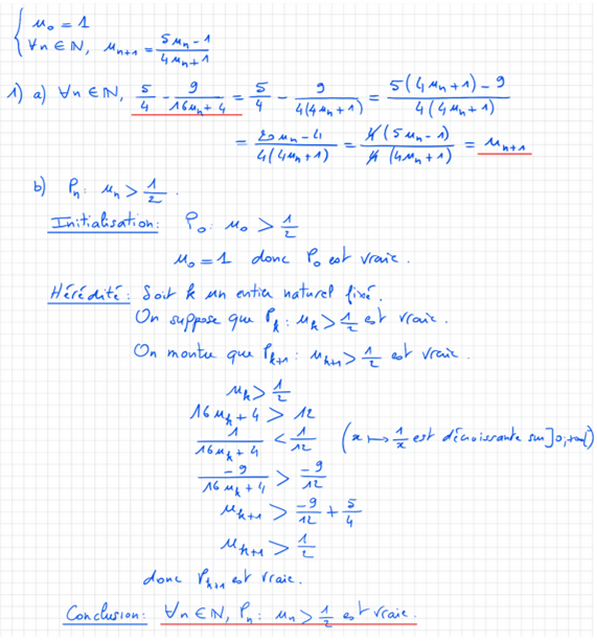 { u₀ = 1
∀n ∈ ℕ, uₙ₊₁ = (5uₙ - 1)/(4uₙ + 1)
1) a) ∀n ∈ ℕ, 5/4 - 9/(16uₙ + 4) = 5/4 - 9/(4(4uₙ + 1)) = (5(4uₙ + 1) - 9)/(4(4uₙ + 1))
= (20uₙ - 4)/(4(4uₙ + 1)) = (4(5uₙ - 1))/(4(4uₙ + 1)) = uₙ₊₁
b) Pₙ : uₙ > 1/2 .
Initialisation : P₀ : u₀ > 1/2
u₀ = 1 donc P₀ est vraie .
Hérédité : Soit k un entier naturel fixé.
On suppose que Pₖ : uₖ > 1/2 est vraie.
On montre que Pₖ₊₁ : uₖ₊₁ > 1/2 est vraie.
uₖ > 1/2
16uₖ + 4 > 12
1/(16uₖ + 4) < 1/12 (x ↦ 1/x est décroissante sur ]0;+∞[)
-9/(16uₖ + 4) > -9/12
uₖ₊₁ > -9/12 + 5/4
uₖ₊₁ > 1/2
donc Pₖ₊₁ est vraie.
Conclusion : ∀n ∈ ℕ, Pₙ : uₙ > 1/2 est vraie.